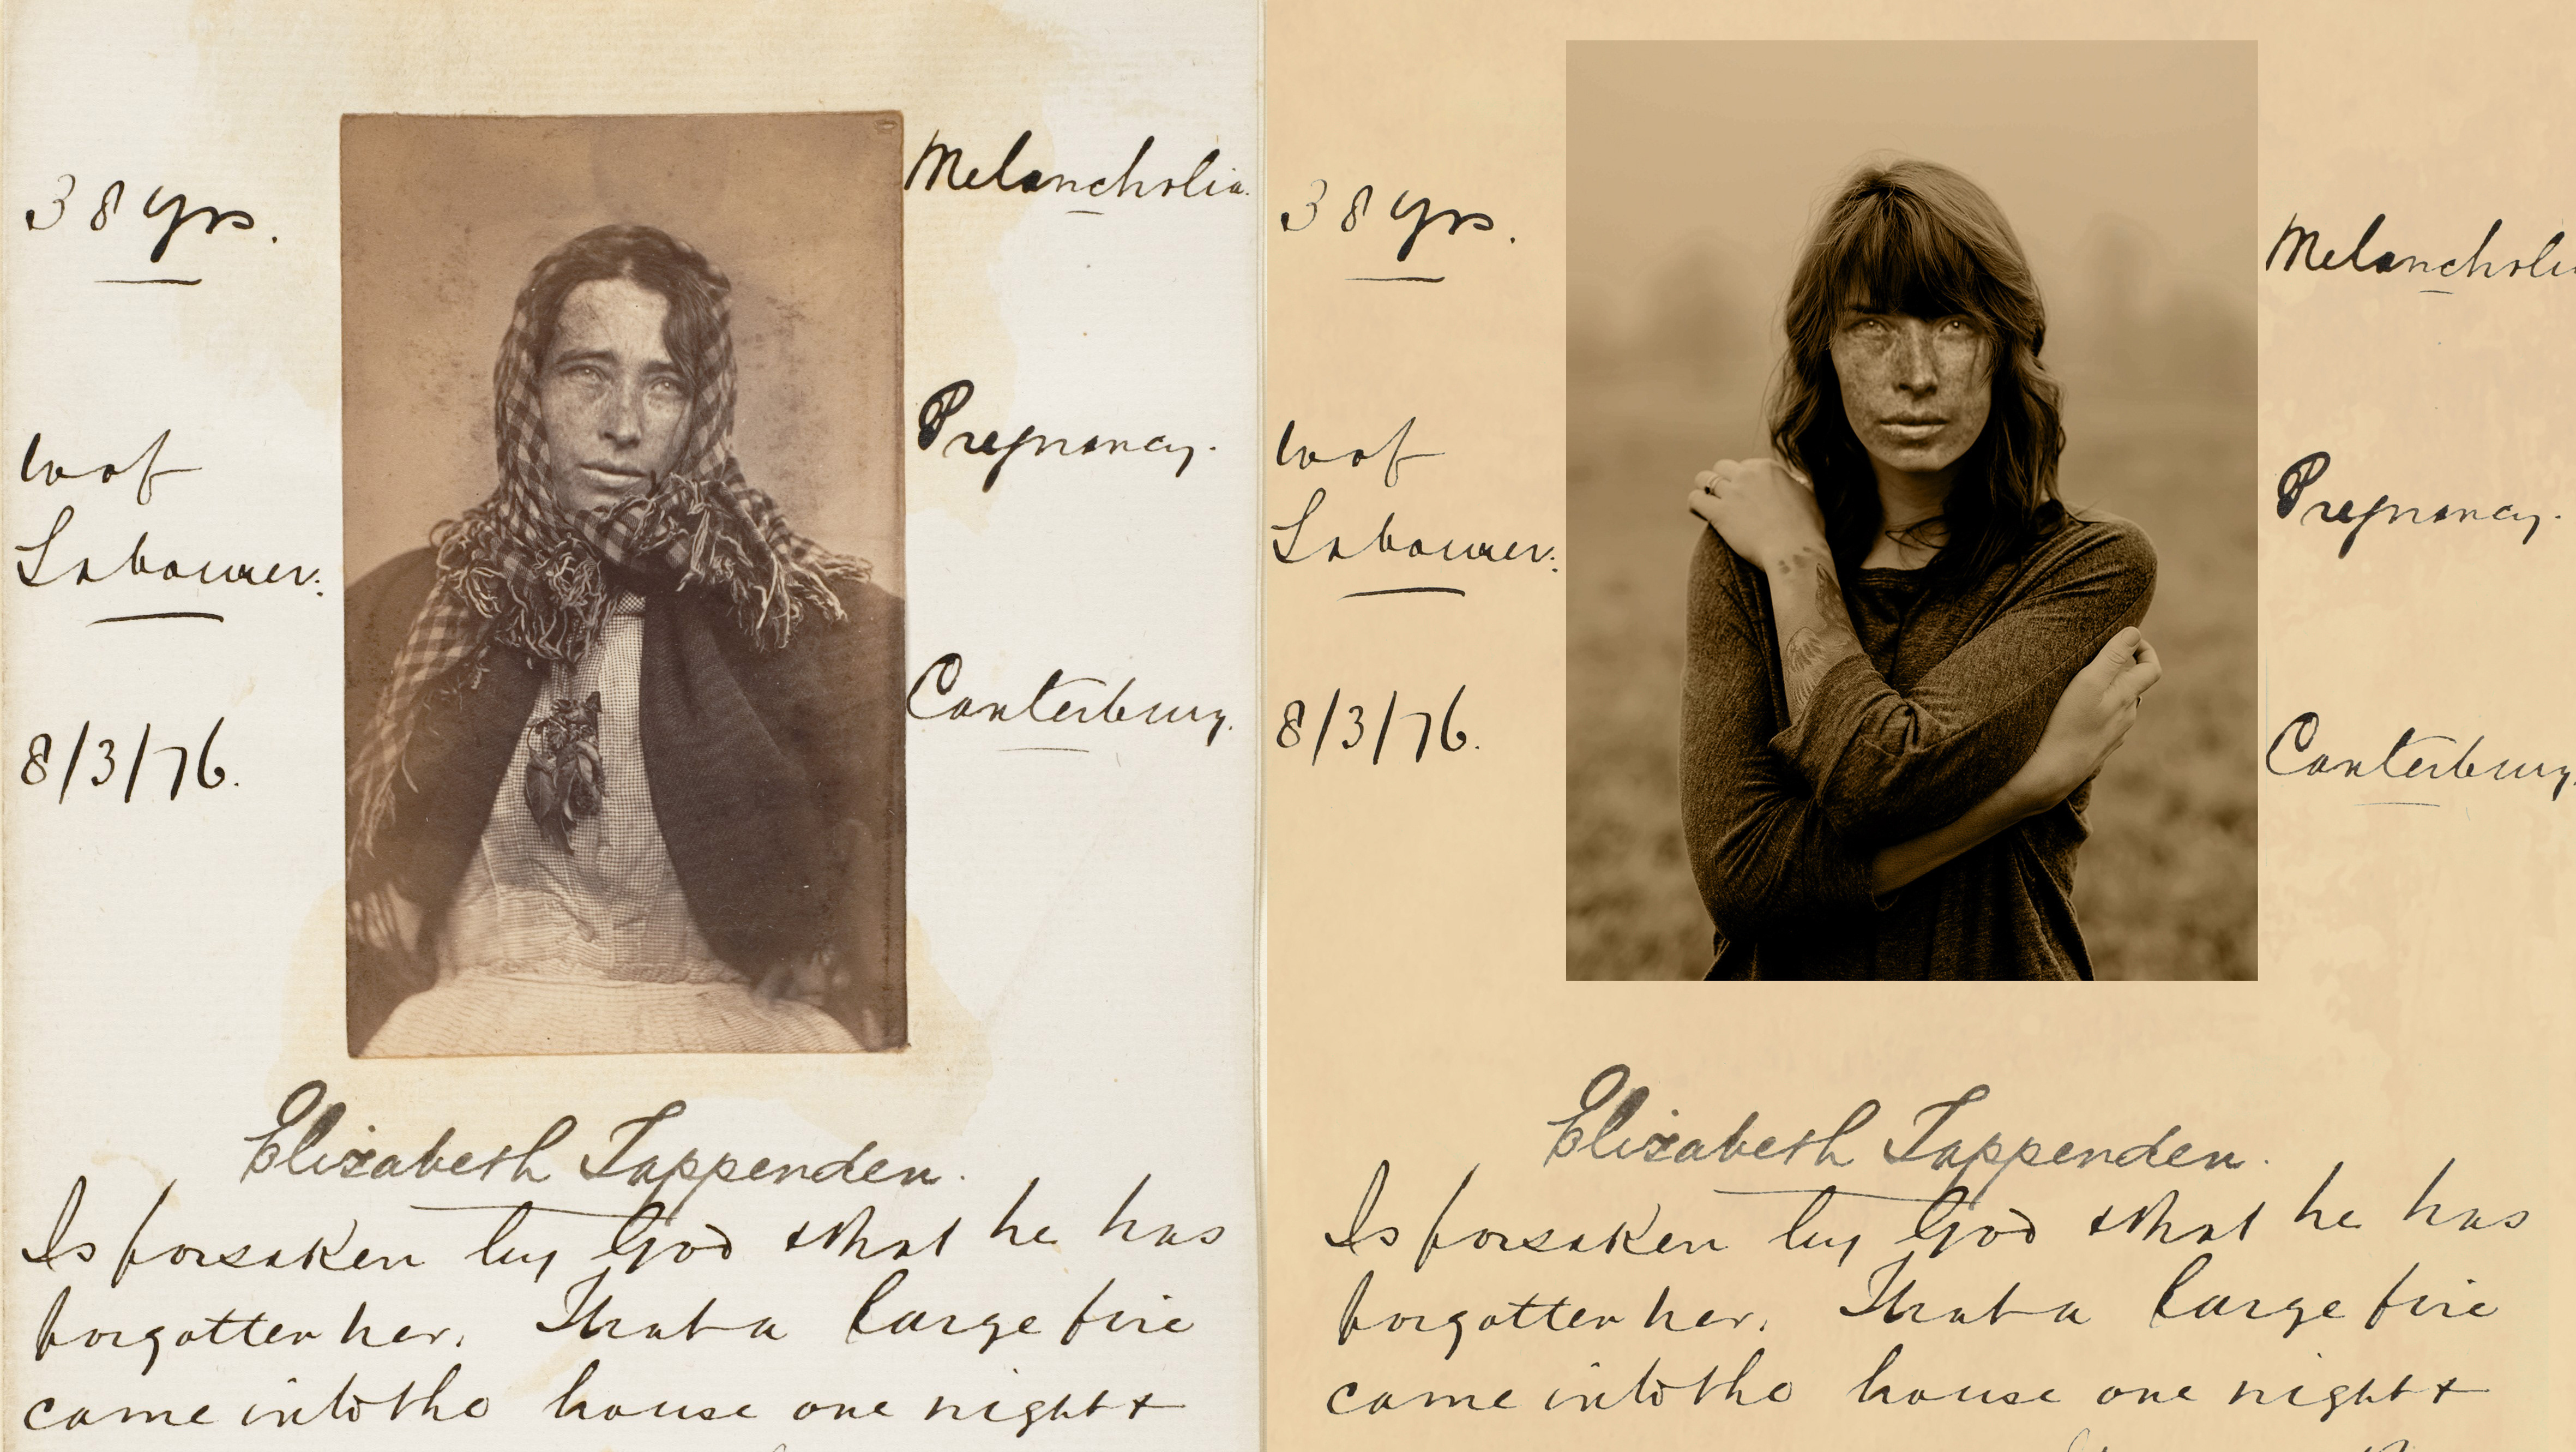 38 yrs.
w of
Labourer.
8/3/76.
Melancholia.
Pregnancy.
Canterbury.
Elizabeth Tappenden.
Is forsaken by God & that he has
forgotten her. That a large fire
came into the house one night &
38 yrs.
w of
Labourer.
8/3/76.
Melancholi
Pregnancy.
Canterbury
Elizabeth Tappenden.
Is forsaken by God & that he has
forgotten her. That a large fire
came into the house one night &